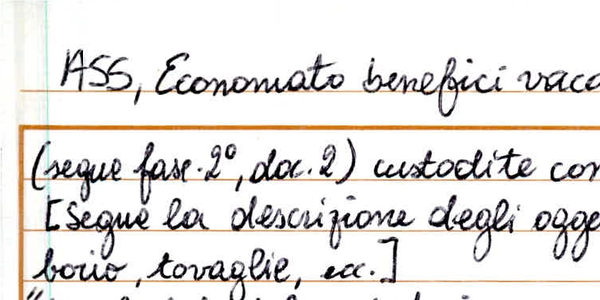 ASS, Economato benefici vaca
(segue fasc. 2°, doc. 2) custodite con
[Segue la descrizione degli ogge
borio, tovaglie, ecc.]